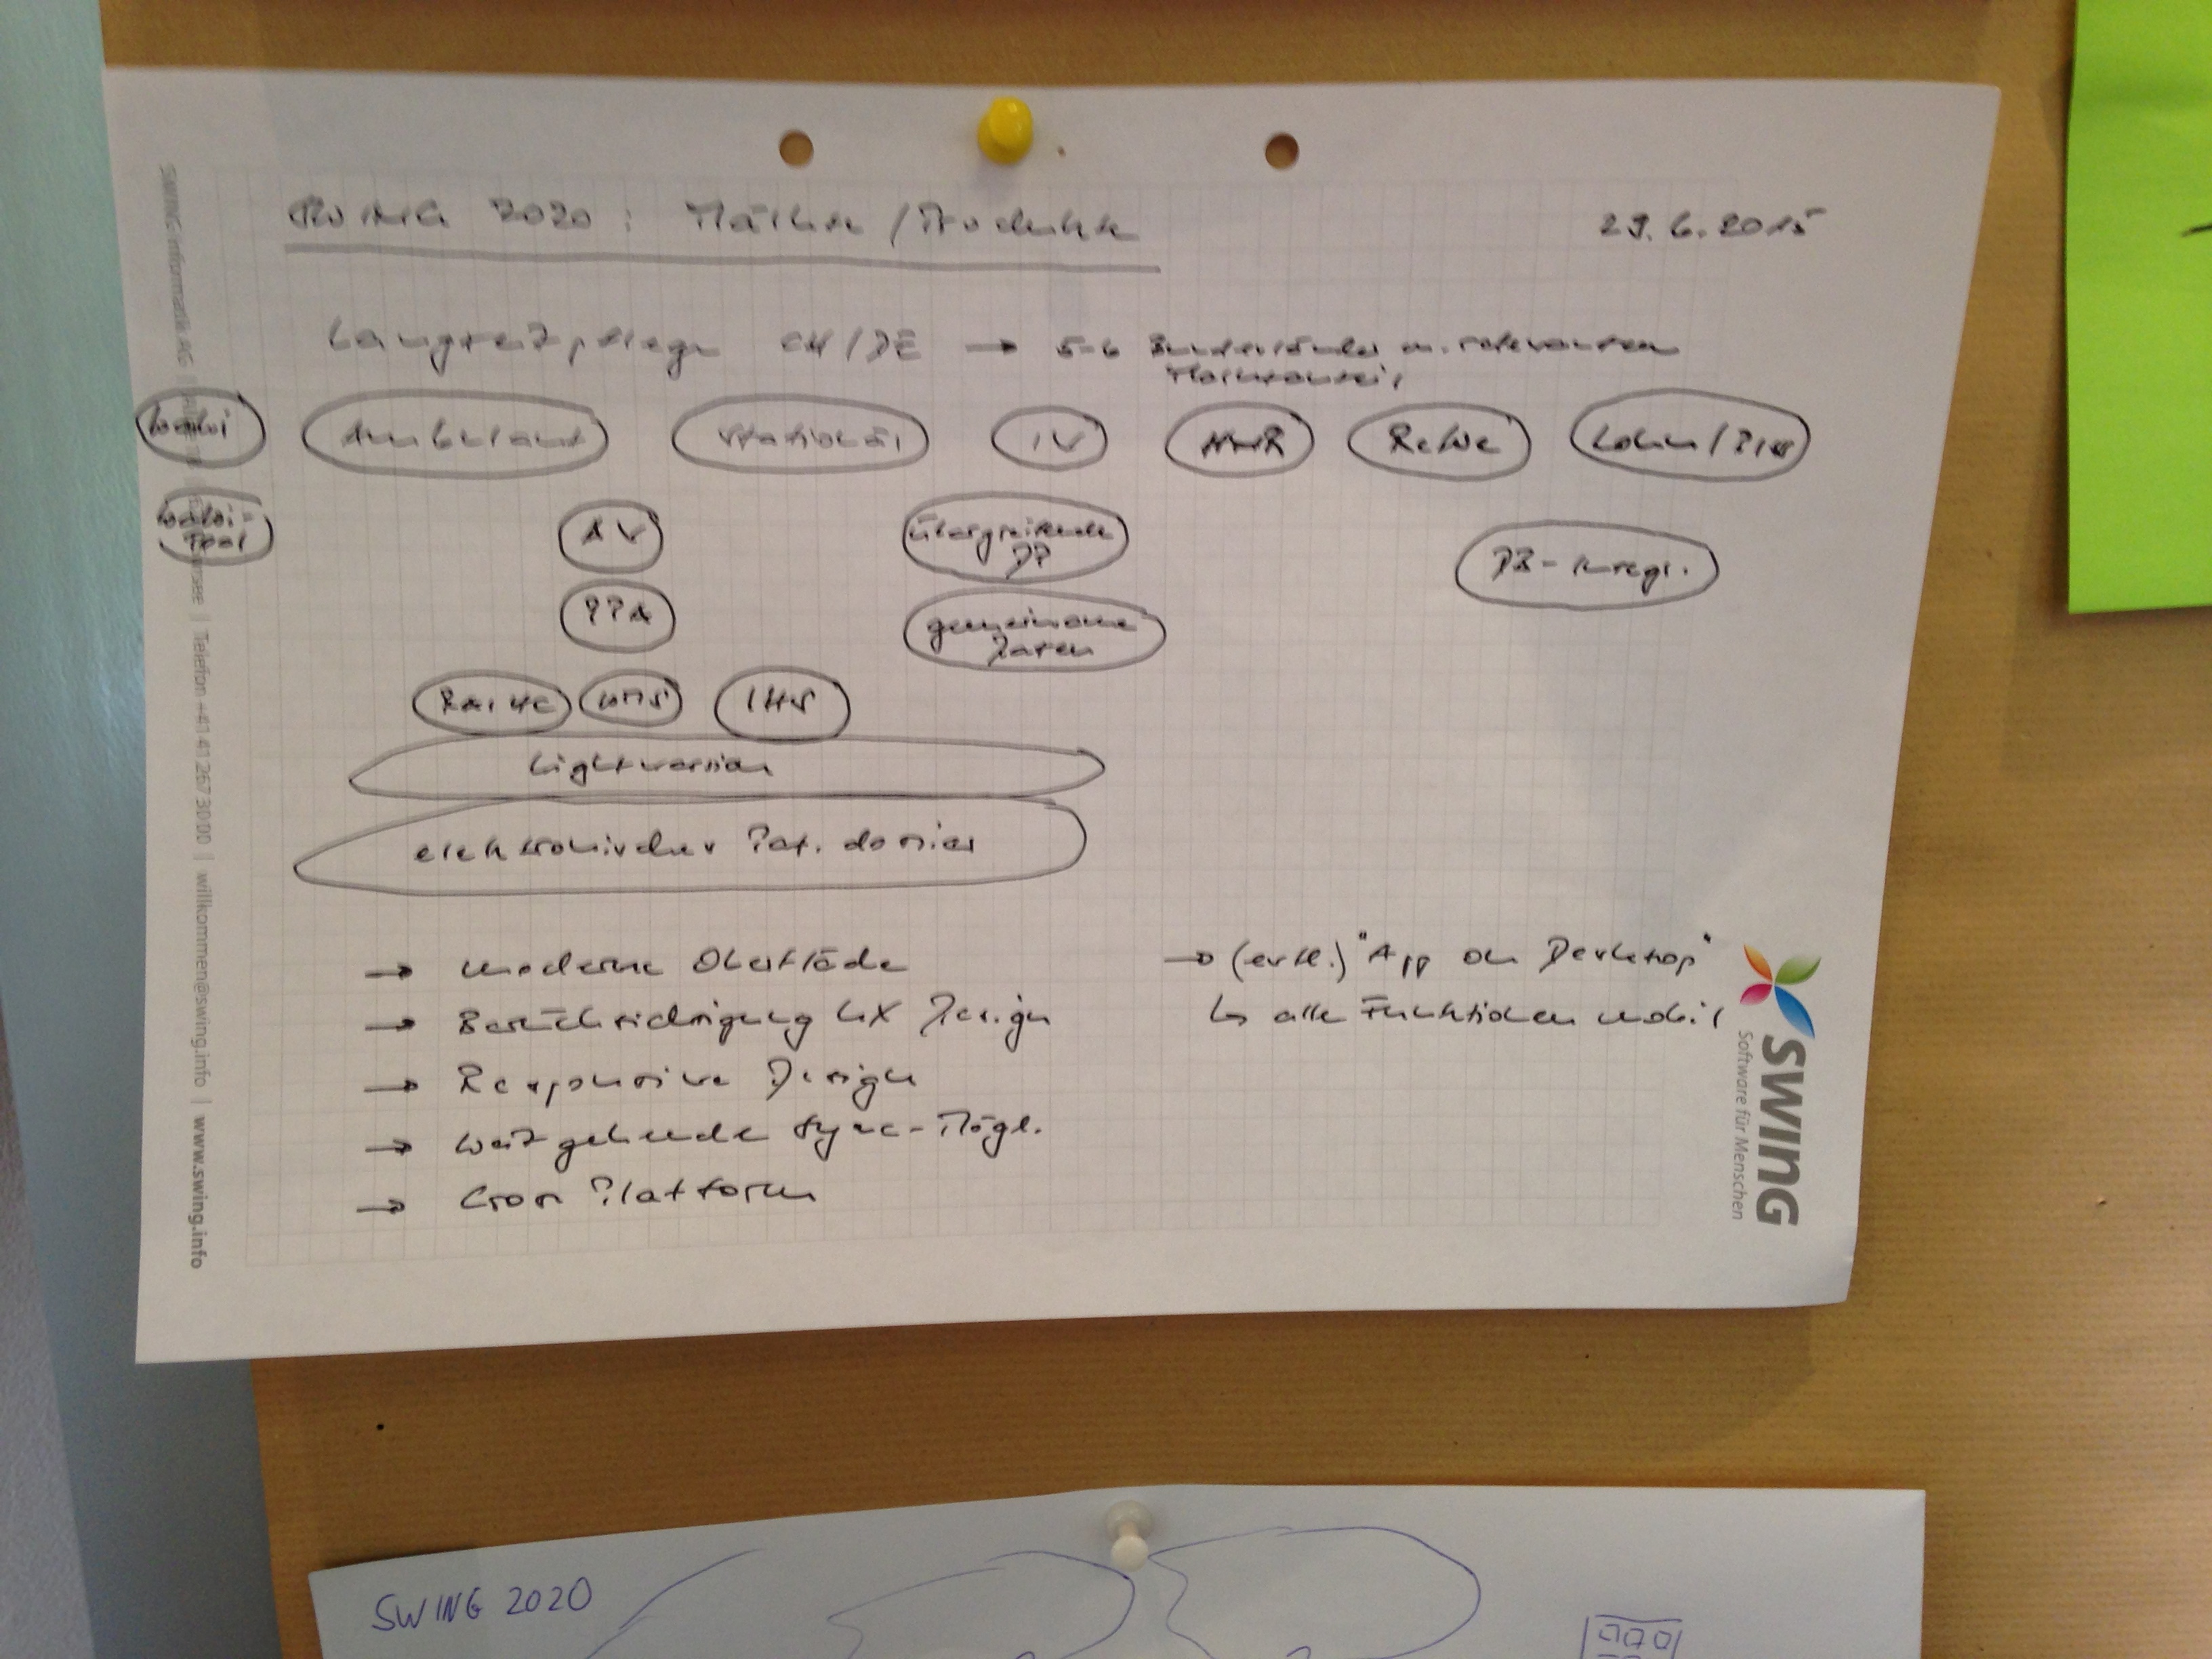 SWING 2020: Märkte/Produkte
29.6.2015
Langzeitpflege CH/DE → 5-6 Bundesländer m. relevanten
Marktanteil
Ambulant
stationär
IV
ReWe
Lohn/
AV
übergreifende
DP
PPA
gemeinsame
Daten
RAI HC
IHS
Lightversion
elektronischer Pat. dossier
→ moderne Oberfläche
→ Berücksichtigung UX Design
→ Responsive Design
→ weitgehende Sync-Mögl.
→ Cross Plattform
→ (evtl.) "App on Desktop"
↳ alle Funktionen mobil
SWING
Software für Menschen
SWING Informatik AG
Telefon +41 41 267 30 00 | willkommen@swing.info | www.swing.info
SWING 2020